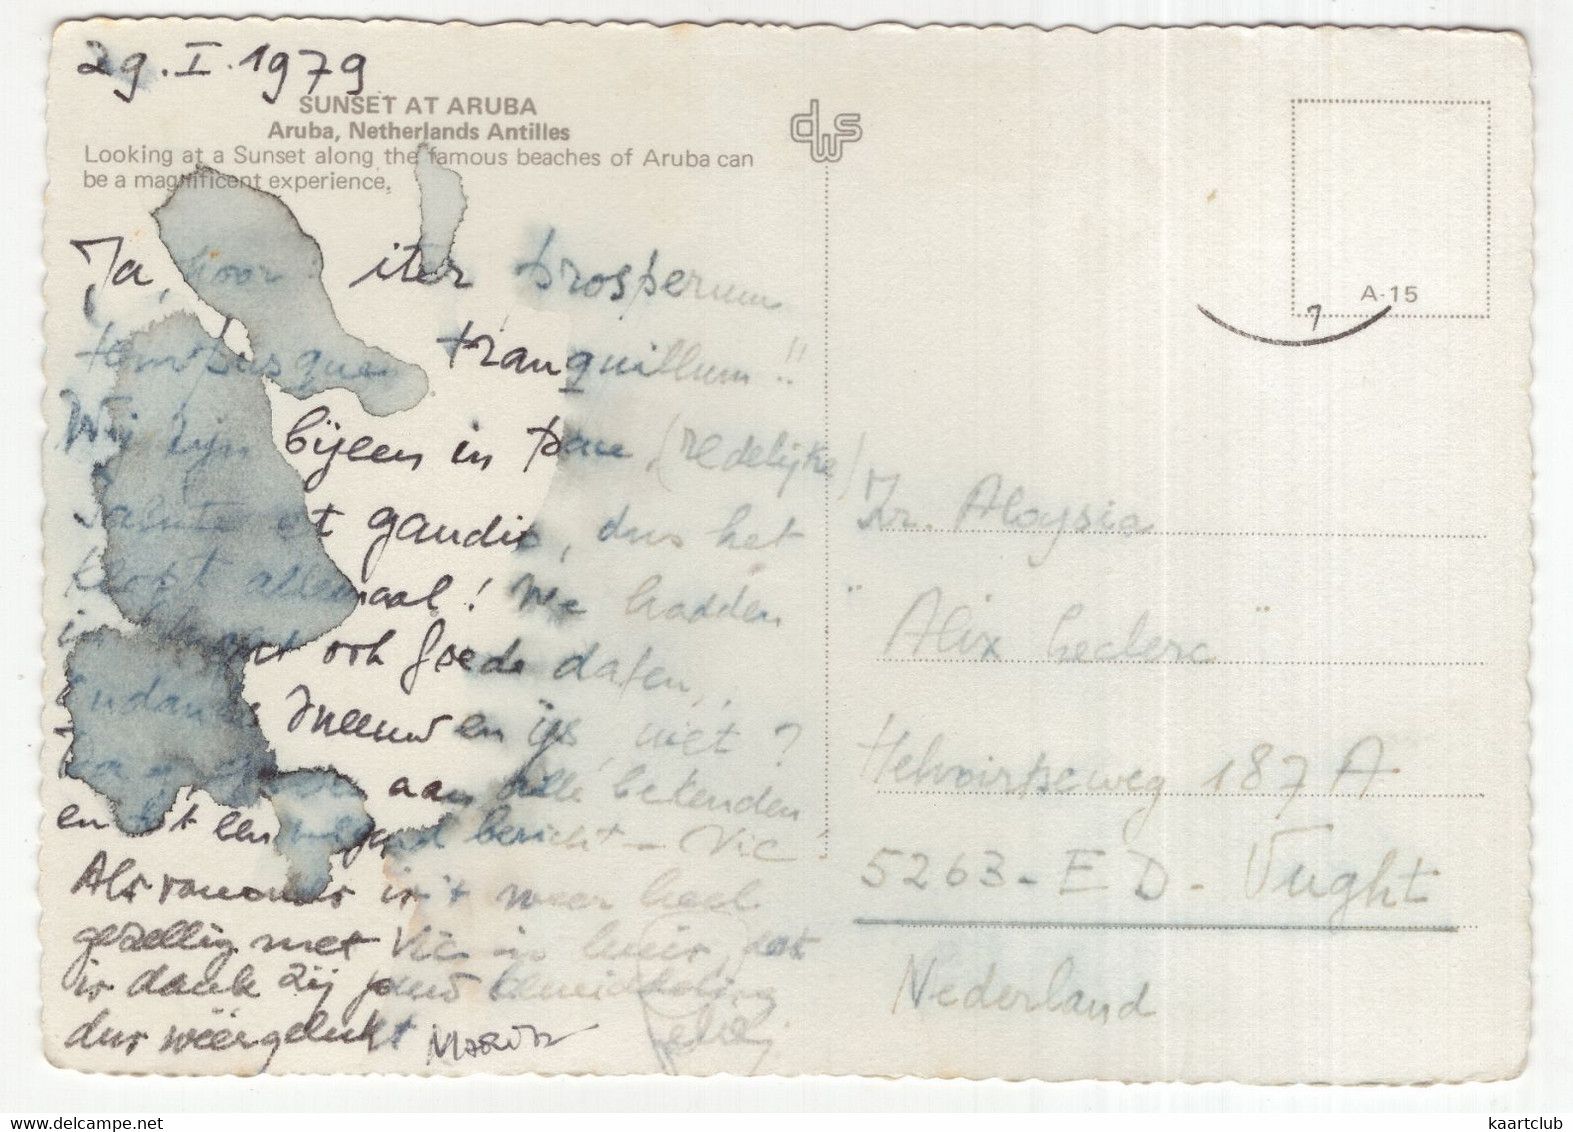 29.I.1979
SUNSET AT ARUBA
Aruba, Netherlands Antilles
Looking at a Sunset along the famous beaches of Aruba can
be a magnificent experience.
dws
A-15
7
Ja, hoor iter prosperum
tempusque tranquillum!!
Wij zijn bijeen in pace (redelijke)
Salute et gaudio, dus het
klopt allemaal! We hadden
ook goede dagen,
ondanks sneeuw en ijs, niet?
aan alle bekenden
en tot een volgend bericht - Vic
Als vanouds is 't weer heel
gezellig met Vic in huis, dat
is dank zij jouw bemiddeling
dus wéér gelukt
Zr. Aloysia
Alix Leclerc
Helvoirtseweg 187 A
5263 - ED - Vught
Nederland
www.delcampe.net
kaartclub